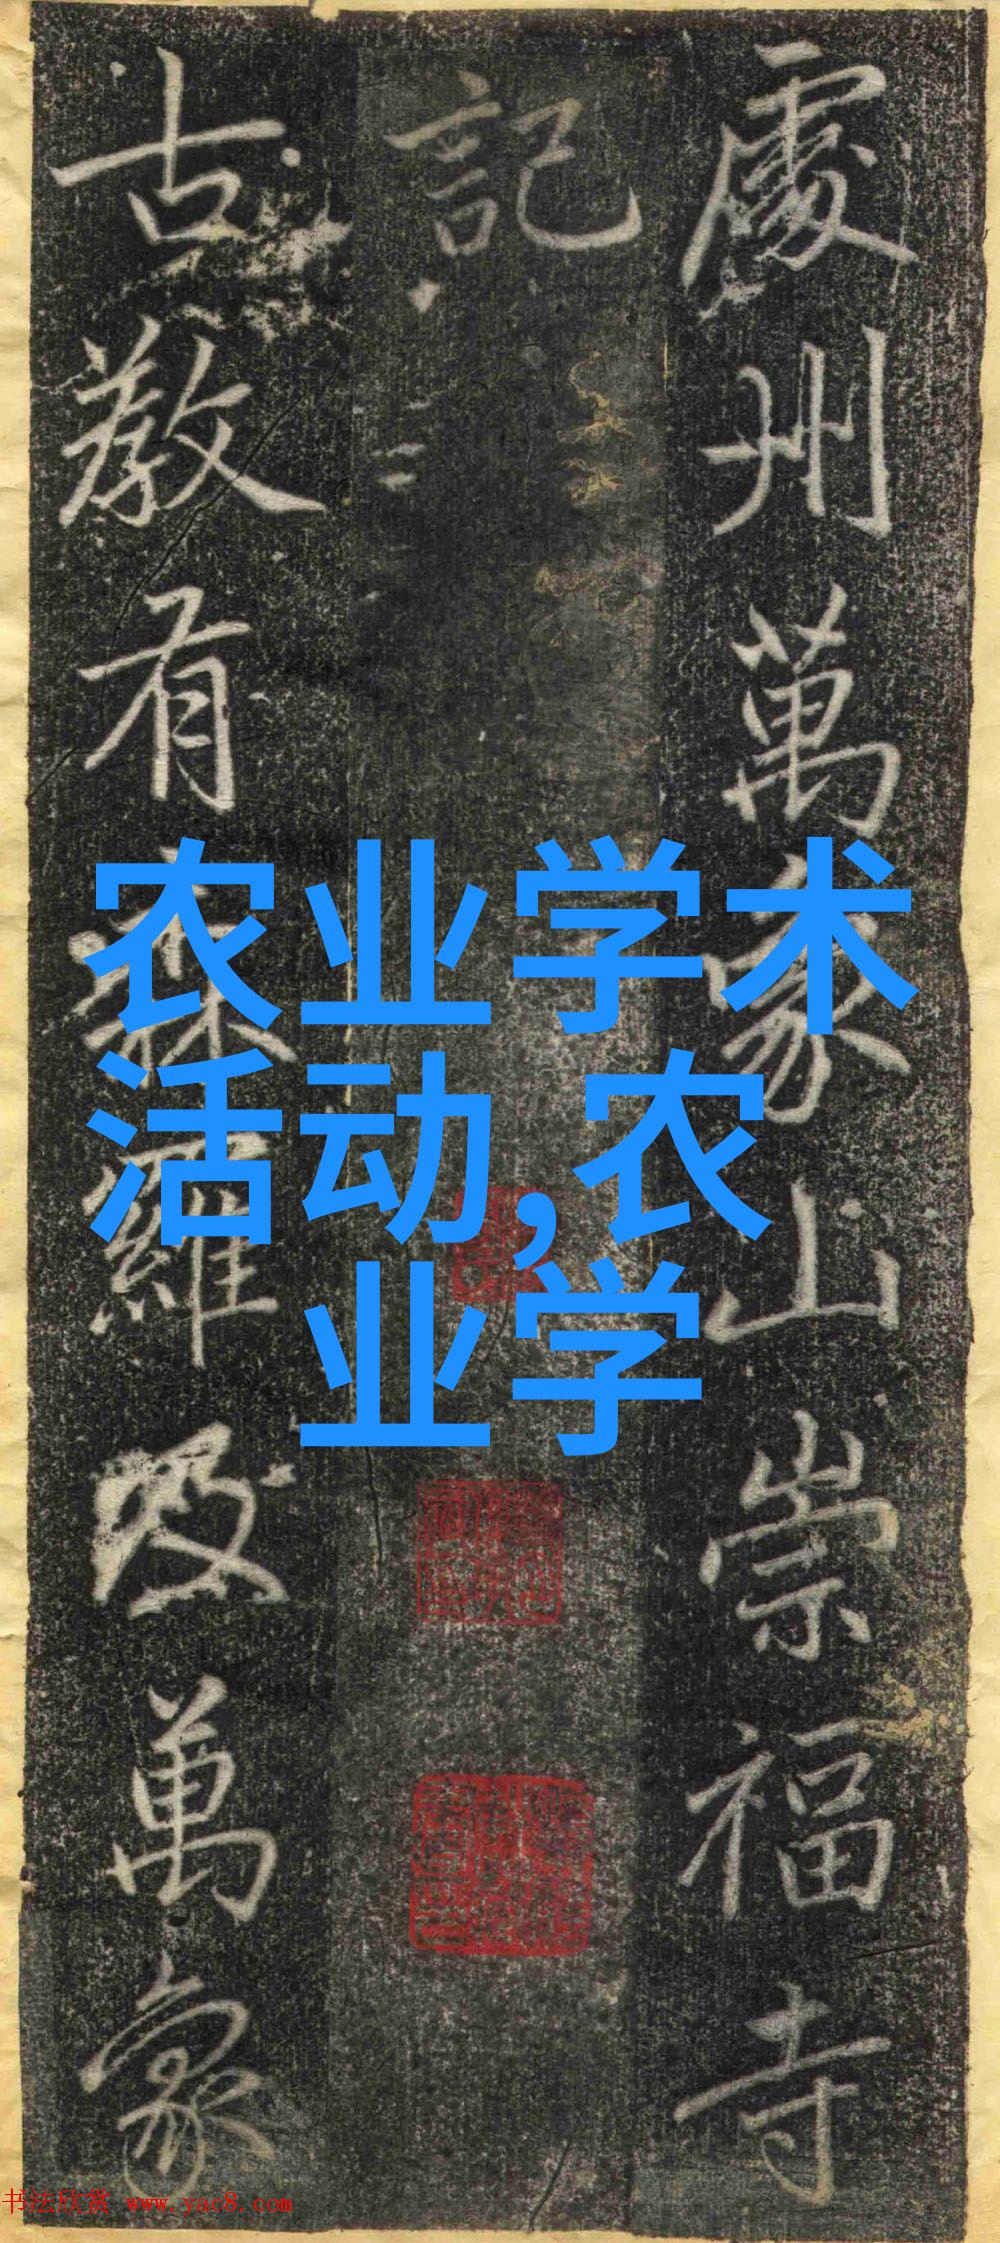 處州萬象山崇福寺
記
古教有森羅及萬象
农业学术
活动,农
业学
书法欣赏 www.yac8.com